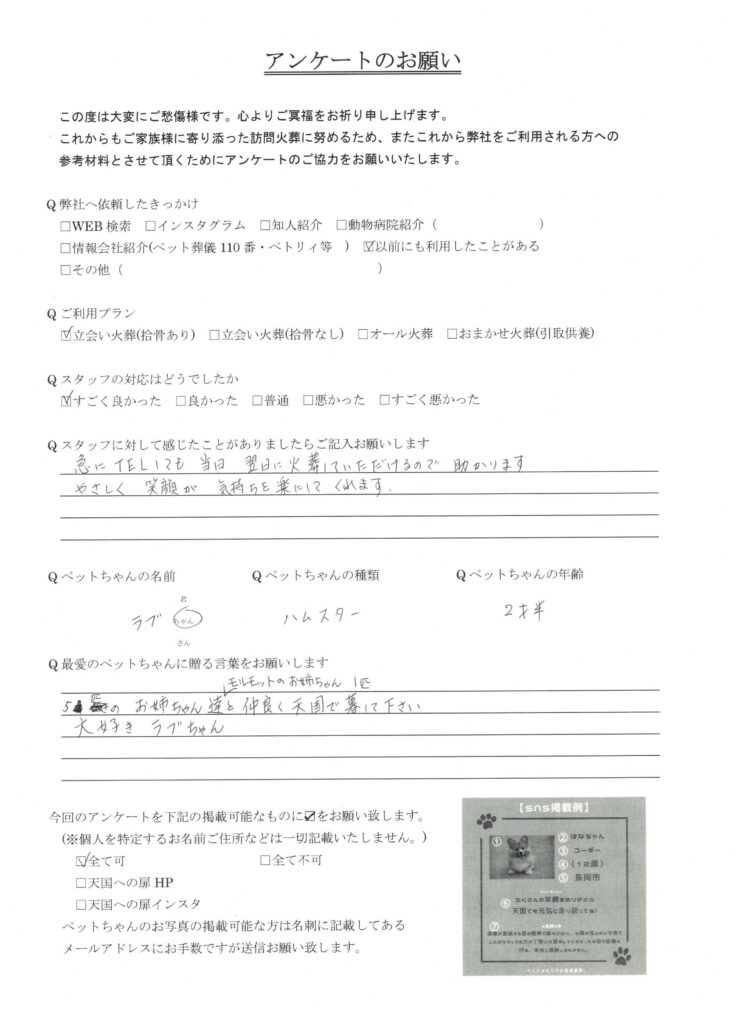 アンケートのお願い
この度は大変にご愁傷様です。心よりご冥福をお祈り申し上げます。
これからもご家族様に寄り添った訪問火葬に努めるため、またこれから弊社をご利用される方への
参考材料とさせて頂くためにアンケートのご協力をお願いいたします。
Q 弊社へ依頼したきっかけ
□WEB 検索 □インスタグラム □知人紹介 □動物病院紹介（ ）
□情報会社紹介(ペット葬儀 110 番・ペトリィ等 ) ☑以前にも利用したことがある
□その他（ ）
Q ご利用プラン
☑立会い火葬(拾骨あり) □立会い火葬(拾骨なし) □オール火葬 □おまかせ火葬(引取供養)
Q スタッフの対応はどうでしたか
☑すごく良かった □良かった □普通 □悪かった □すごく悪かった
Q スタッフに対して感じたことがありましたらご記入お願いします
急に TELしても 当日 翌日に火葬していただけるので 助かります
やさしく 笑顔が 気持ちを楽にしてくれます.
Q ペットちゃんの名前 Q ペットちゃんの種類 Q ペットちゃんの年齢
君
ラブ ちゃん ハムスター 2才半
さん
Q 最愛のペットちゃんに贈る言葉をお願いします
モルモットのお姉ちゃん 1匹
5匹の お姉ちゃん達と仲良く天国で暮して下さい
大好き ラブちゃん
今回のアンケートを下記の掲載可能なものに☑をお願い致します。
(※個人を特定するお名前ご住所などは一切記載いたしません。)
☑全て可 □全て不可
□天国への扉 HP
□天国への扉インスタ
ペットちゃんのお写真の掲載可能な方は名刺に記載してある
メールアドレスにお手数ですが送信お願い致します。
【sns掲載例】
① ②はなちゃん
③コーギー
④(12歳)
⑤長岡市
⑥たくさんの笑顔をありがとう
天国でも元気に走り回ってね!
⑦